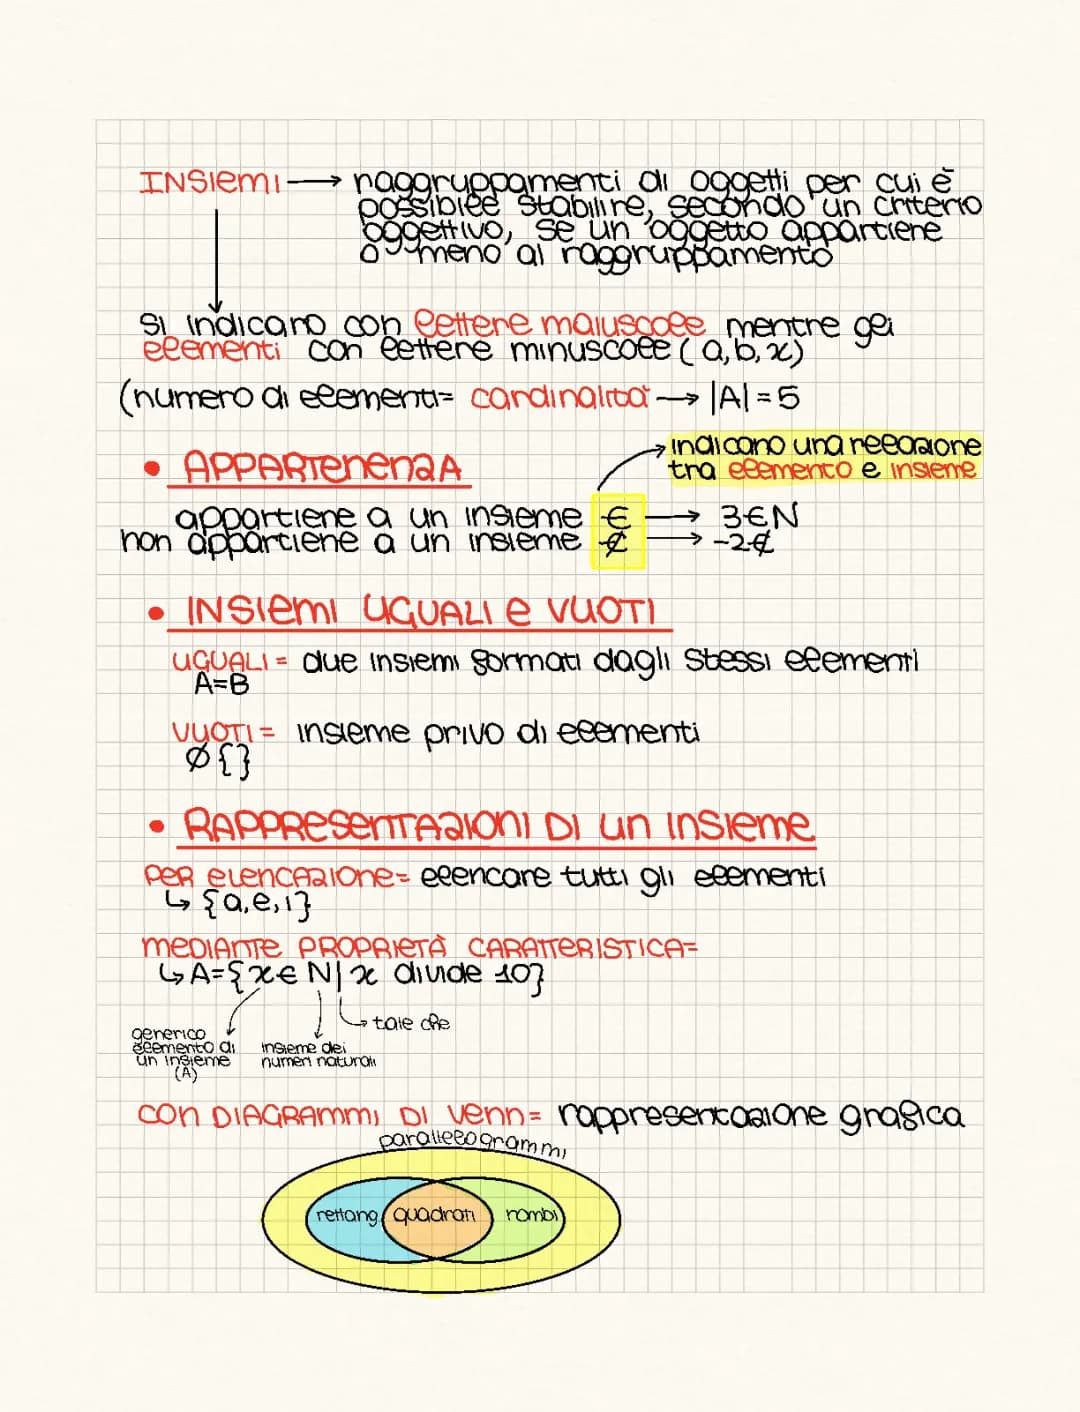 INSIEMI → raggruppamenti di oggetti per cui è
possibile stabilire, secondo un criterio
oggettivo, se un oggetto appartiene
o meno al raggruppamento
Si indicano con lettere maiuscole mentre gli
elementi con lettere minuscole (a,b,x)
(numero di elementi= cardinalità → |A|=5
indicano una relazione
tra elemento e insieme
• APPARTENENZA
appartiene a un insieme ∈ → 3∈N
non appartiene a un insieme ∉ → -2∉
• INSIEMI UGUALI e VUOTI
UGUALI = due insiemi formati dagli stessi elementi
A=B
VUOTI = insieme privo di elementi
Ø{}
• RAPPRESENTAZIONI DI un INSIEME
PER ELENCAZIONE= elencare tutti gli elementi
↳ {a,e,i}
MEDIANTE PROPRIETÀ CARATTERISTICA=
↳ A={x∈N|x divide 10}
tale che
generico
elemento di
un insieme
(A)
insieme dei
numeri naturali
CON DIAGRAMMI DI VENN= rappresentazione grafica
parallelogrammi
rettang. quadrati rombi